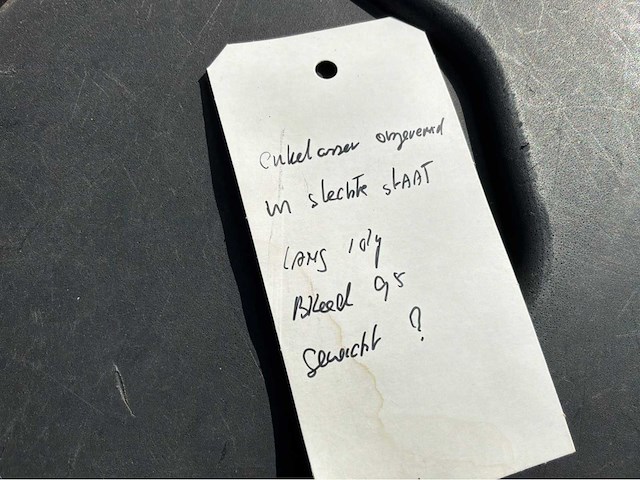 enkelasser ongeveerd
in slechte stAAT
lang
Breed 95
Gewicht ?